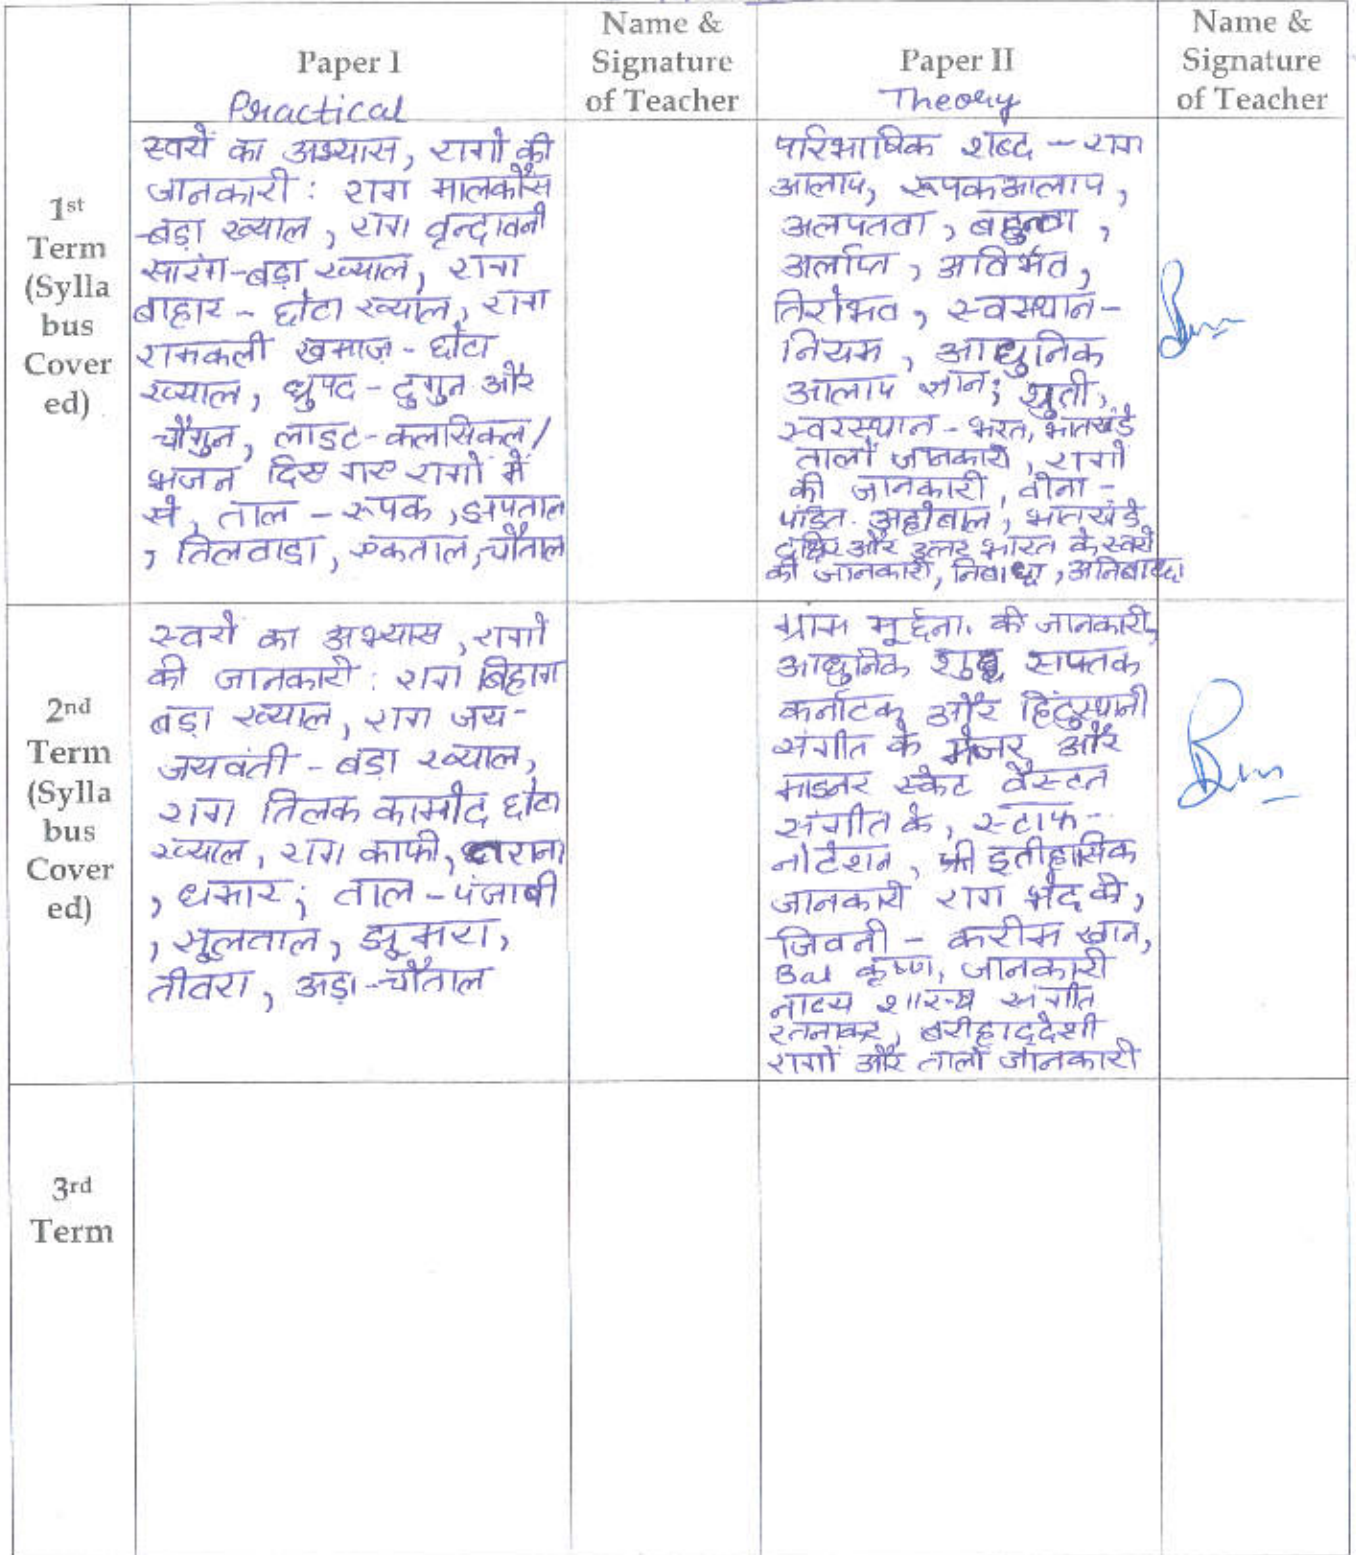 Name &
Signature
of Teacher
Name &
Signature
of Teacher
Paper I
Practical
Paper II
Theory
1st
Term
(Sylla
bus
Cover
ed)
स्वरों का अभ्यास, रागो की
जानकारी : राग मालकौंस
-बड़ा ख्याल, राग वृन्दावनी
सारंग-बड़ा ख्याल, राग
बाहार - छोटा ख्याल, राग
रामकली खमाज़ - छोटा
ख्याल, ध्रुपद - दुगुन और
चौगुन, लाइट-क्लासिकल/
भजन दिए गए रागों में
से, ताल - रूपक, झपताल
, तिलवाड़ा, एकताल, चौताल
परिभाषिक शब्द - राग
आलाप, रूपकआलाप,
अलपतवा, बहुत्वा,
अर्लाप्त, अविर्भत,
तिरोभत, स्वस्थान-
नियम, आधुनिक
आलाप ज्ञान; श्रुती,
स्वरस्थान - भरत, भातखंडे
तालों जानकारी, रागों
की जानकारी, वीना -
पंडित अहोबाल, भातखंडे
और उत्तर भारत के स्वरों
की जानकारी, निबाध्धा, अनिबाध्धा
2nd
Term
(Sylla
bus
Cover
ed)
स्वरो का अभ्यास, रागो
की जानकारी : राग बिहाग
बड़ा ख्याल, राग जय-
जयवंती - बड़ा ख्याल,
राग तिलक कामोद छोटा
ख्याल, राग काफी, तराना
, धमार; ताल - पंजाबी
, सूलताल, झूमरा,
तीवरा, अड़ा-चौताल
ग्राम मूर्छना. की जानकारी,
आधुनिक शुद्ध सप्तक
कर्नाटक और हिंदुस्थानी
संगीत के मेजर और
माइनर स्केट वैस्टन
संगीत के, स्टाफ-
नोटेशन, इतीहासिक
जानकारी राग भेद की,
जिवनी - करीम खान,
Bal कृष्ण, जानकारी
नाट्य शास्त्र संगीत
रतनाकर, बरीहाद्देशी
रागों और तालों जानकारी
3rd
Term